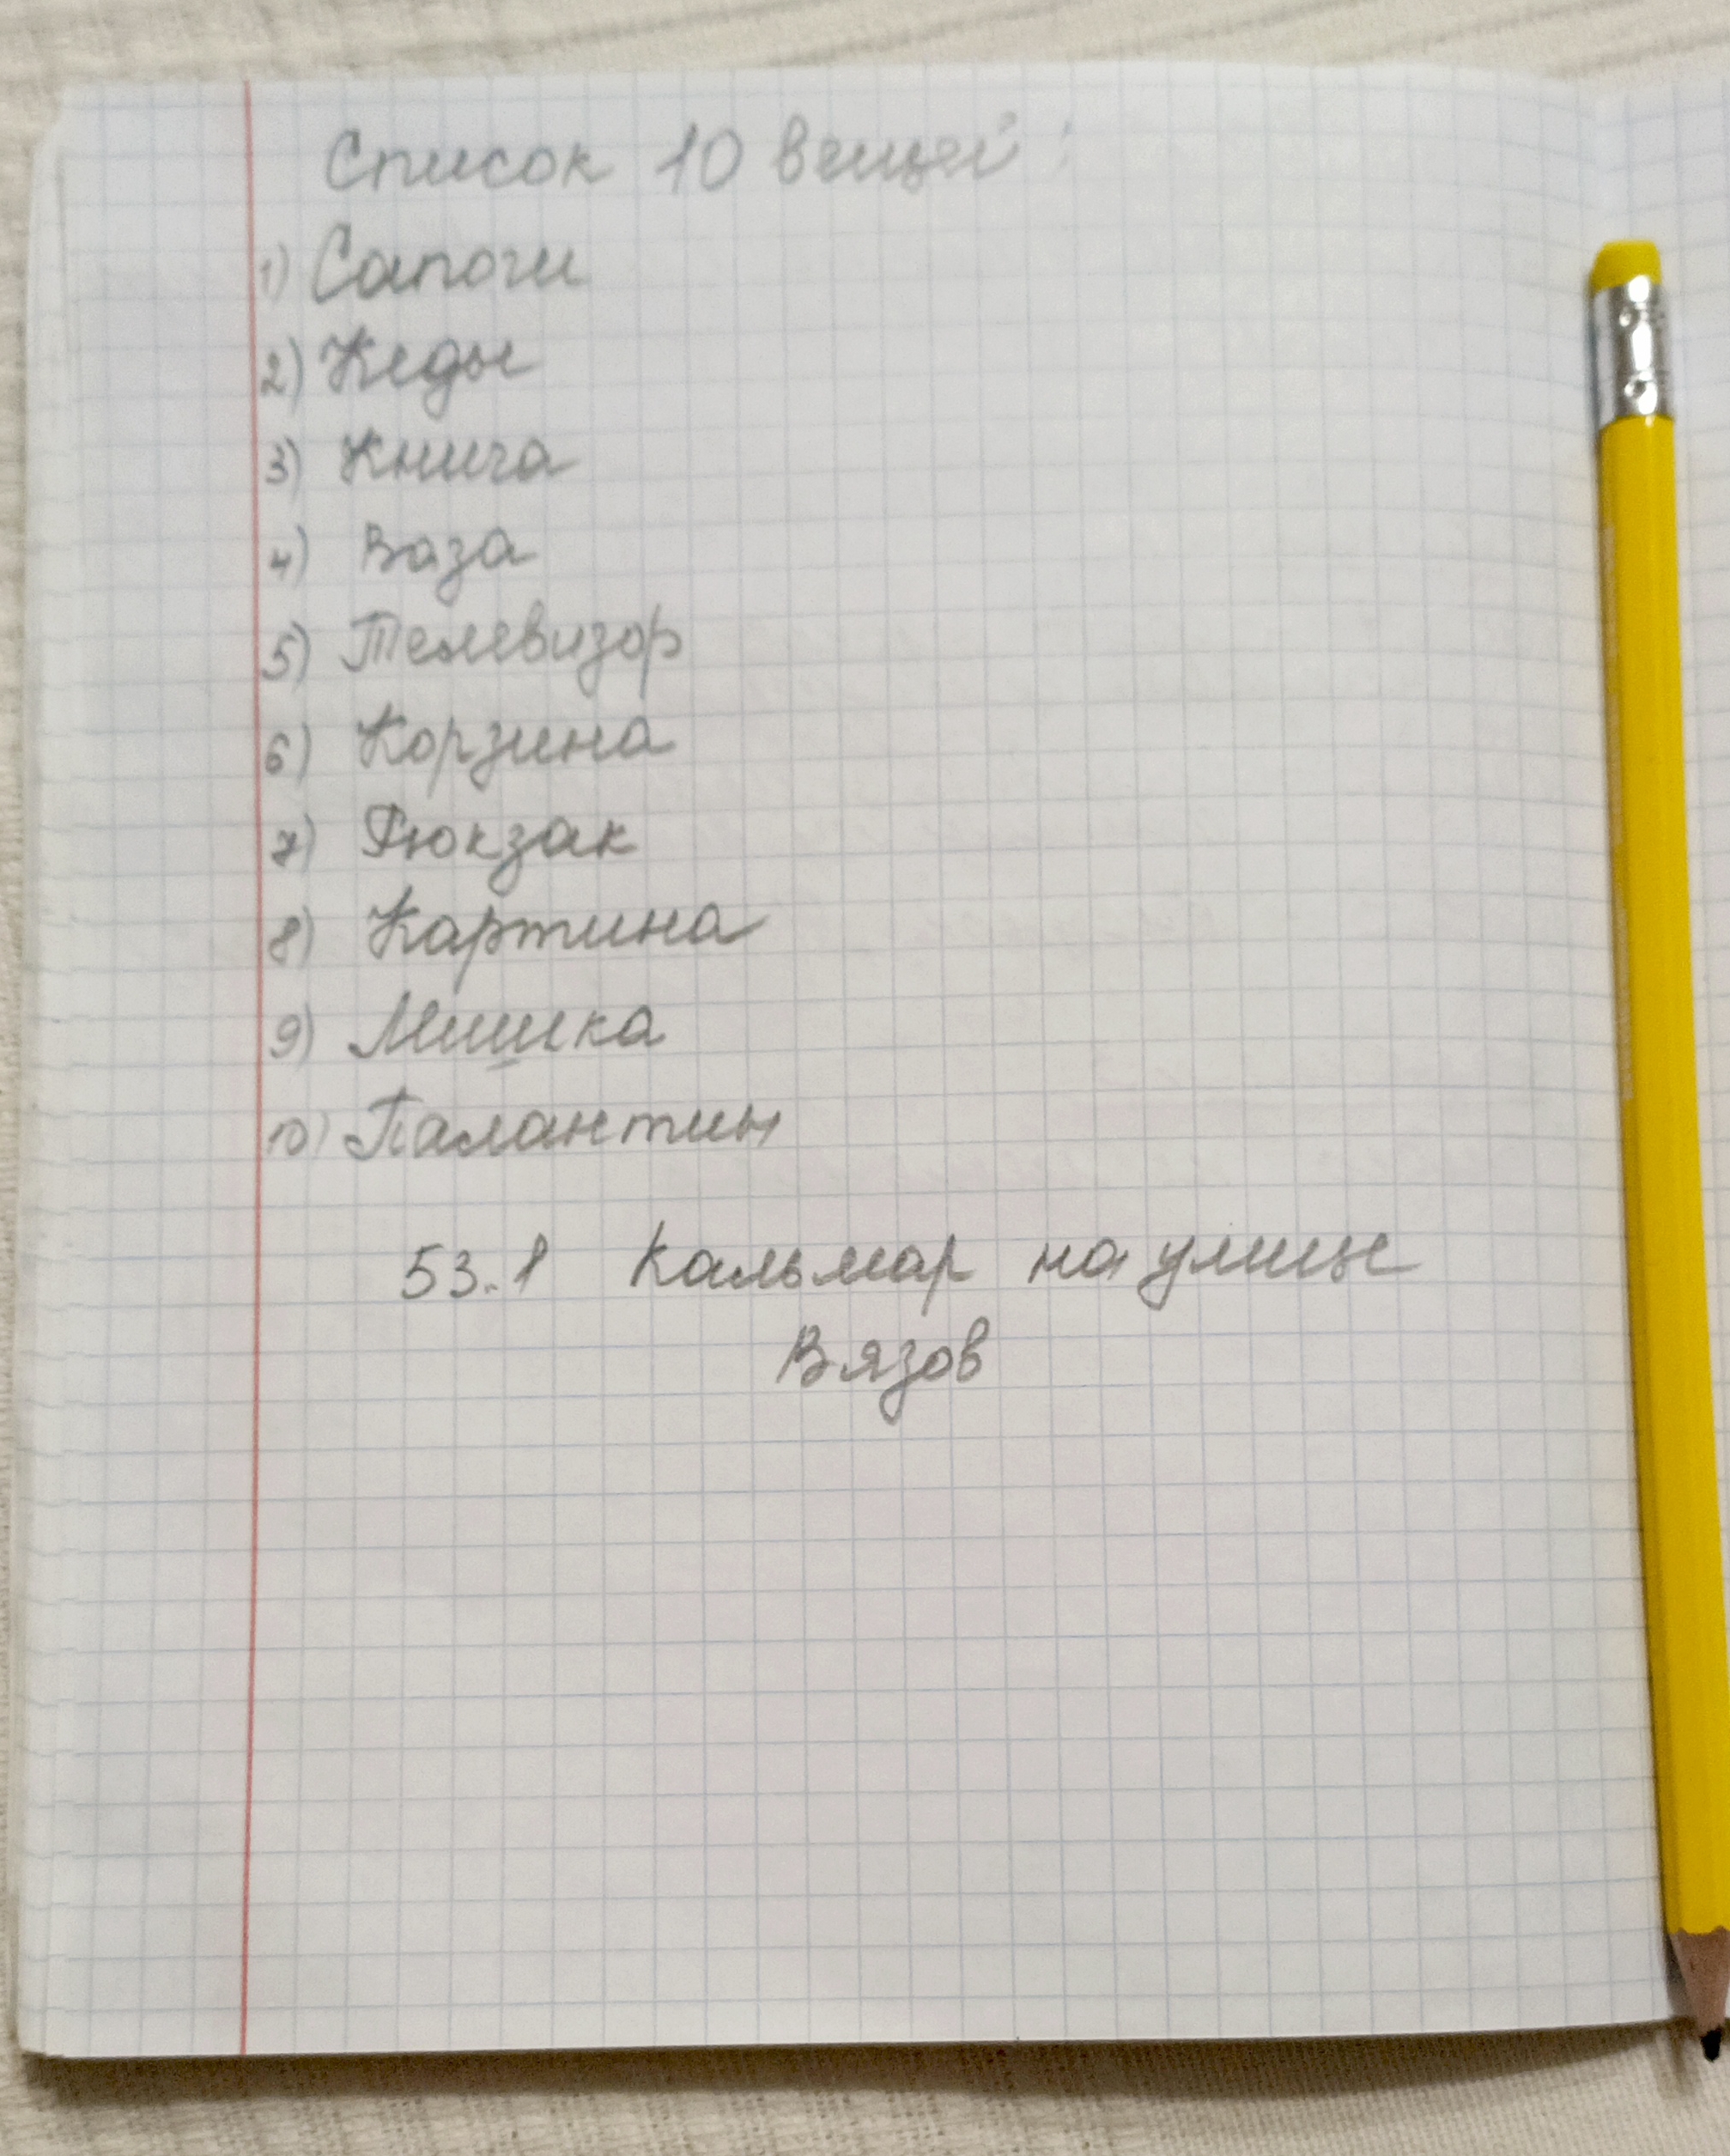 Список 10 вещей:
1) Сапоги
2) Кеды
3) Книга
4) Ваза
5) Телевизор
6) Корзина
7) Рюкзак
8) Картина
9) Мишка
10) Палантин
53.1 Кальмар на улице
Вязов